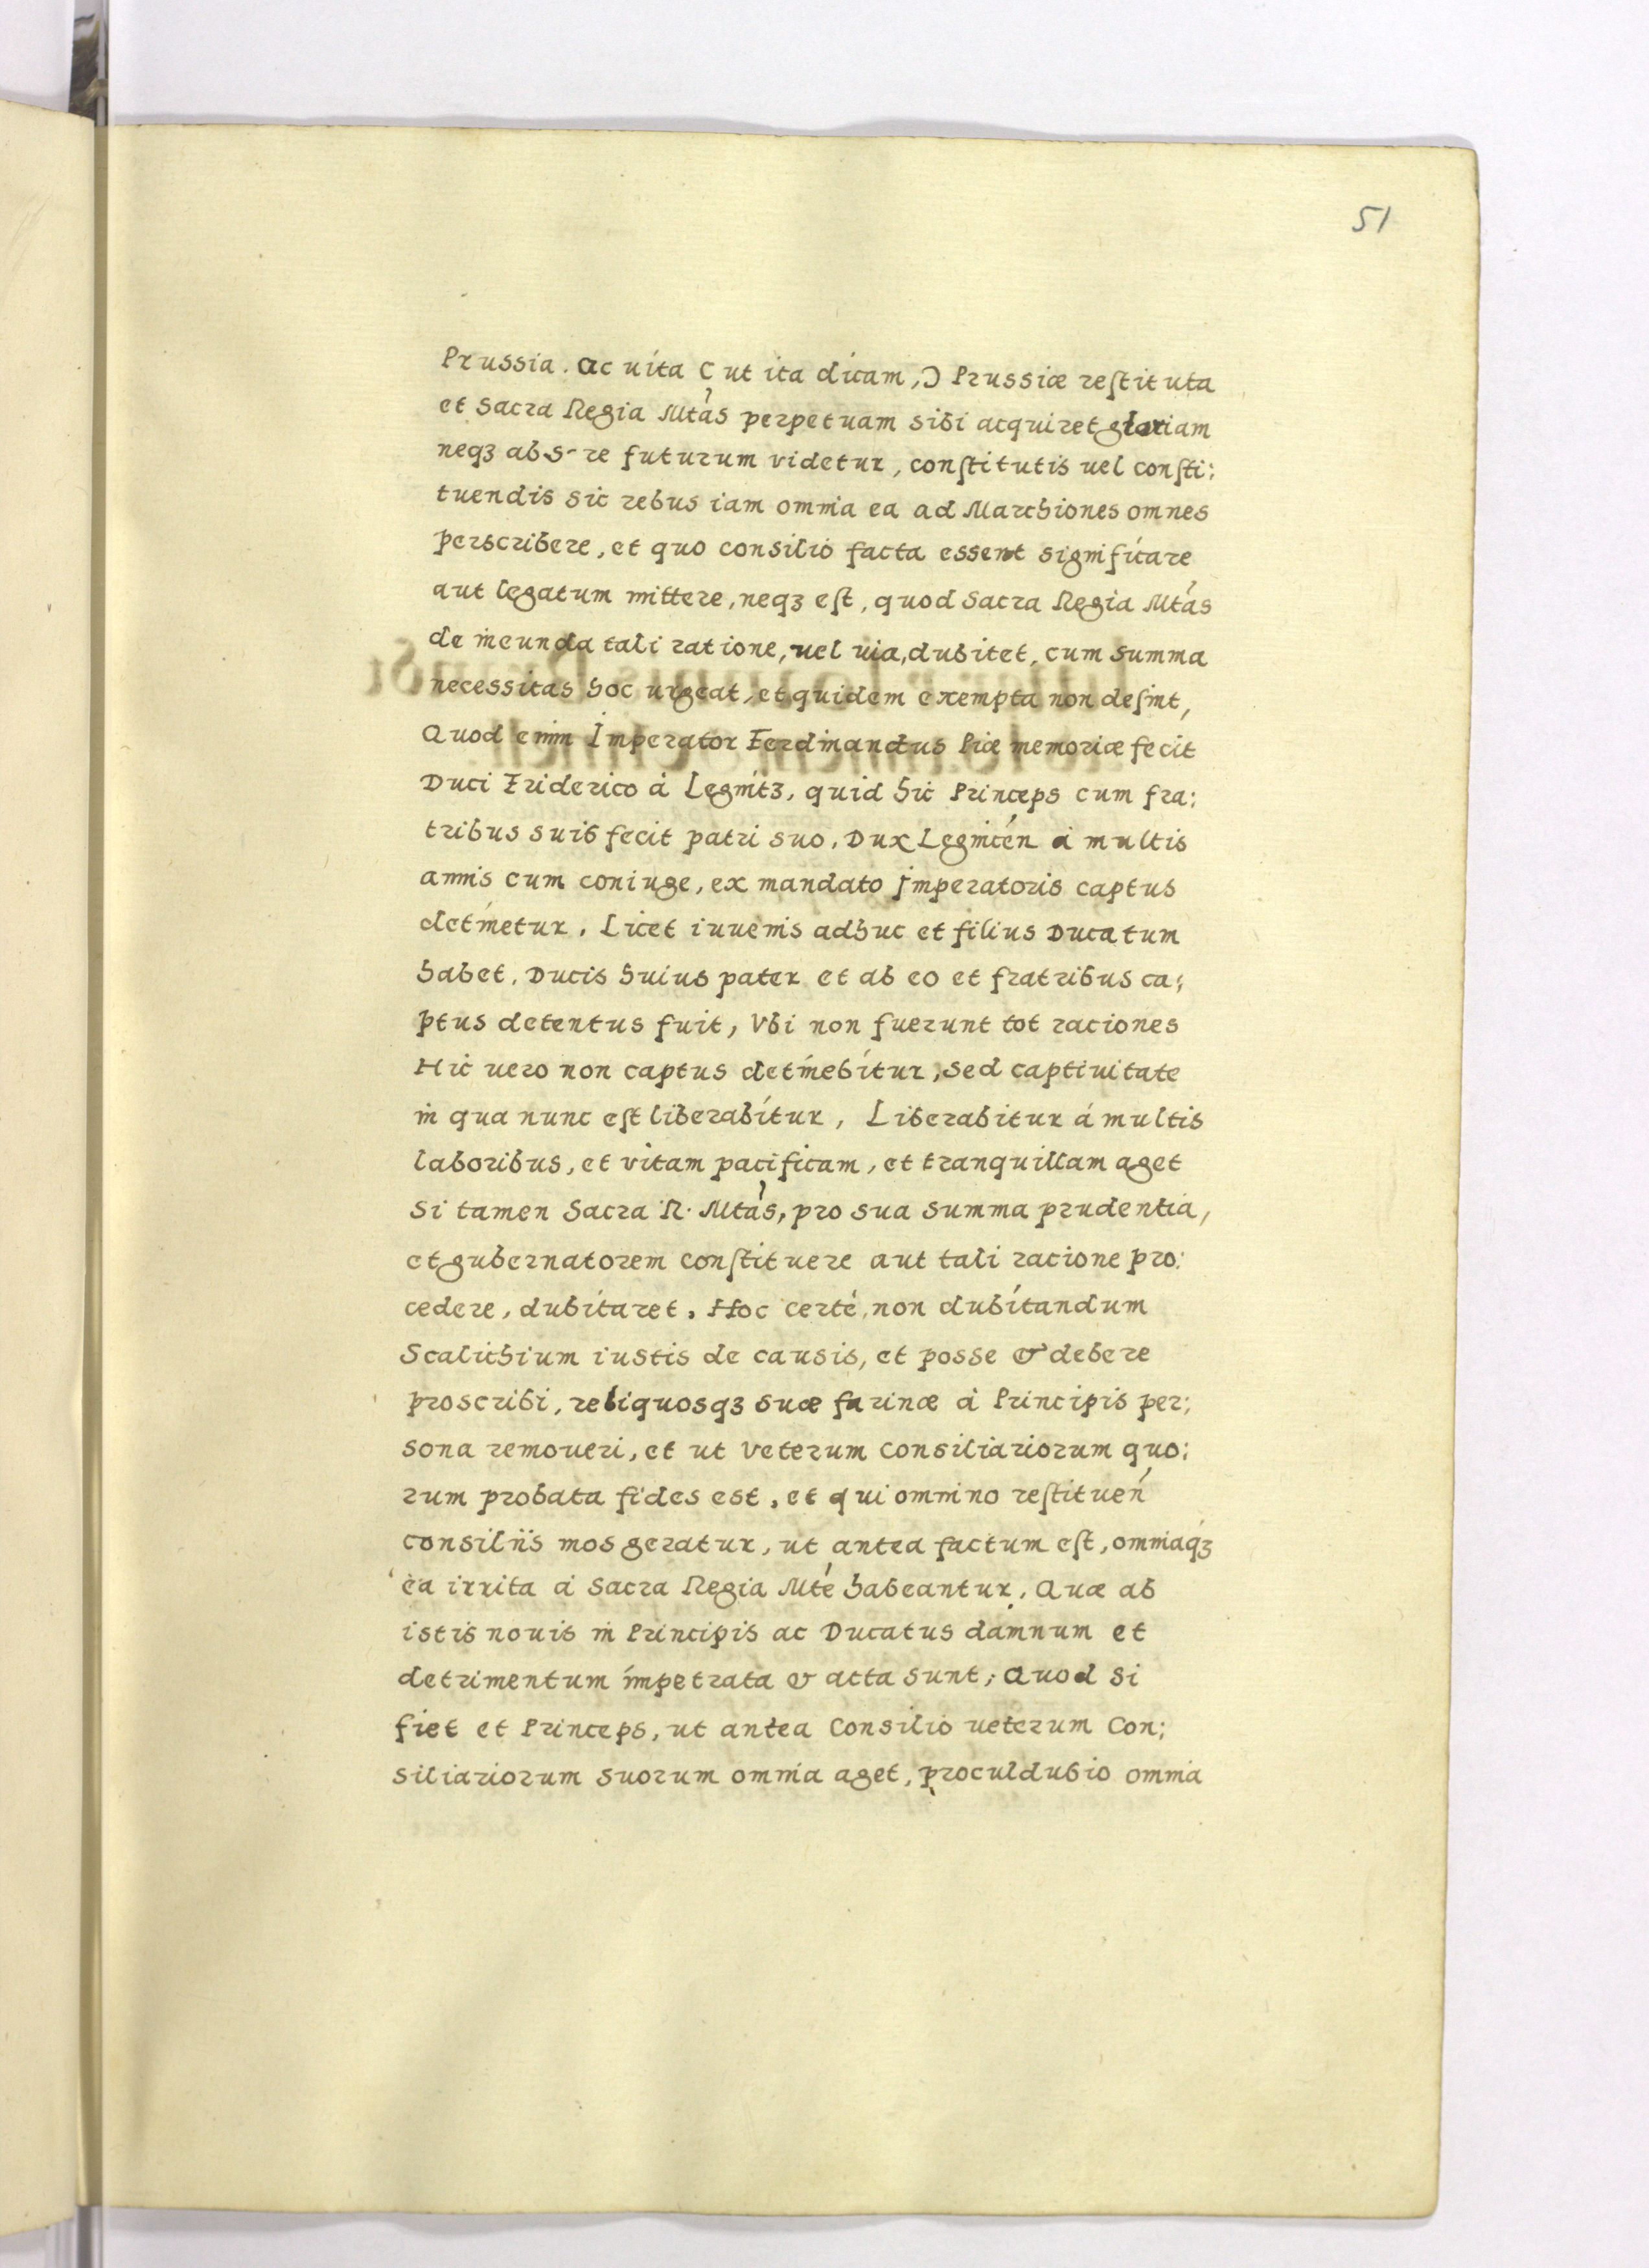 51
Prussia. ac uita ( ut ita dicam,) Prussiæ restituta
et Sacra Regia Mtàs perpetuam sibi acquiret gloriam
neqꝫ abs-re futurum videtur, constitutis uel consti:
tuendis sic rebus iam omnia ea ad Marchiones omnes
perscribere, et quo consilio facta essent significare
aut legatum mittere, neqꝫ est, quod Sacra Regia Mtás
de ineunda tali ratione, uel uia, dubitet, cum summa
necessitas hoc urgeat, et quidem exempta non desint,
Quod enim Imperator Ferdinandus Piæ memoriæ fecit
Duci Friderico à Legnitz, quid hic Princeps cum fra:
tribus suis fecit patri suo. Dux Legnicén à multis
annis cum coniuge, ex mandato Imperatoris captus
detinetur. Licet iuuenis adhuc et filius Ducatum
habet. Ducis huius pater et ab eo et fratribus ca:
ptus detentus fuit, Vbi non fuerunt tot raciones
Hic uero non captus detinebitur, sed captiuitate
in qua nunc est liberabitur, Liberabitur á multis
laboribus, et vitam pacificam, et tranquillam aget
Si tamen Sacra R. Mtàs, pro sua summa prudentia,
et gubernatorem constituere aut tali racione pro:
cedere, dubitaret. Hoc certè, non dubitandum
Scalichium iustis de causis, et posse & debere
proscribi, reliquosqꝫ suæ farinæ à Principis per:
sona remoueri, et ut Veterum consiliariorum quo:
rum probata fides est, et qui omnino restituén
consiliis mos geratur, ut antea factum est, omniaqꝫ
ea irrita à Sacra Regia Mté habeantur. Quæ ab
istis nouis in Principis ac Ducatus damnum et
detrimentum impetrata & acta sunt; Quod si
fiet et Princeps, ut antea Consilio ueterum Con:
siliariorum suorum omnia aget, proculdubio omnia